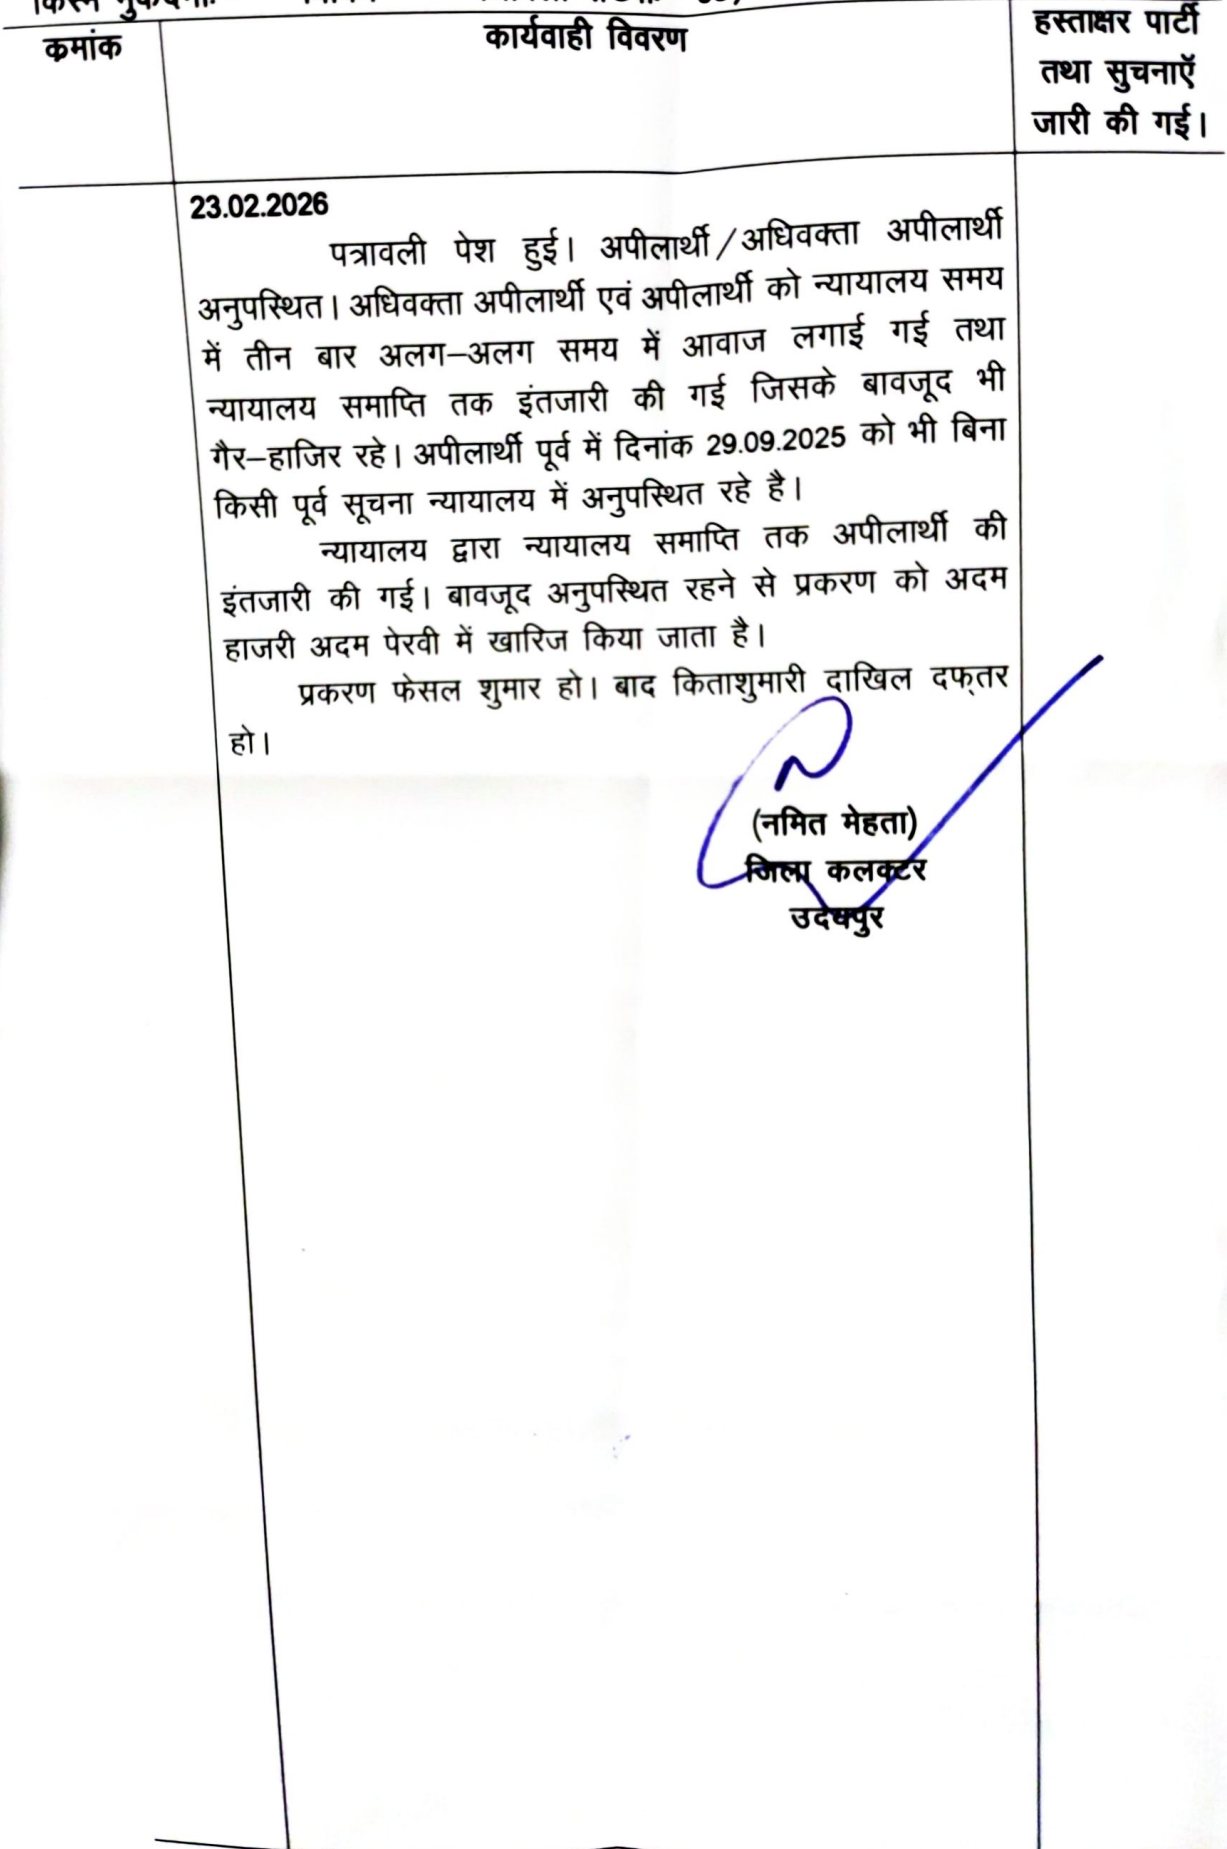 क्रमांक
कार्यवाही विवरण
हस्ताक्षर पार्टी
तथा सुचनाऍ
जारी की गई।
23.02.2026
पत्रावली पेश हुई। अपीलार्थी/अधिवक्ता अपीलार्थी
अनुपस्थित। अधिवक्ता अपीलार्थी एवं अपीलार्थी को न्यायालय समय
में तीन बार अलग–अलग समय में आवाज लगाई गई तथा
न्यायालय समाप्ति तक इंतजारी की गई जिसके बावजूद भी
गैर–हाजिर रहे। अपीलार्थी पूर्व में दिनांक 29.09.2025 को भी बिना
किसी पूर्व सूचना न्यायालय में अनुपस्थित रहे है।
न्यायालय द्वारा न्यायालय समाप्ति तक अपीलार्थी की
इंतजारी की गई। बावजूद अनुपस्थित रहने से प्रकरण को अदम
हाजरी अदम पेरवी में खारिज किया जाता है।
प्रकरण फेसल शुमार हो। बाद किताशुमारी दाखिल दफ्तर
हो।
(नमित मेहता)
जिला कलक्टर
उदयपुर